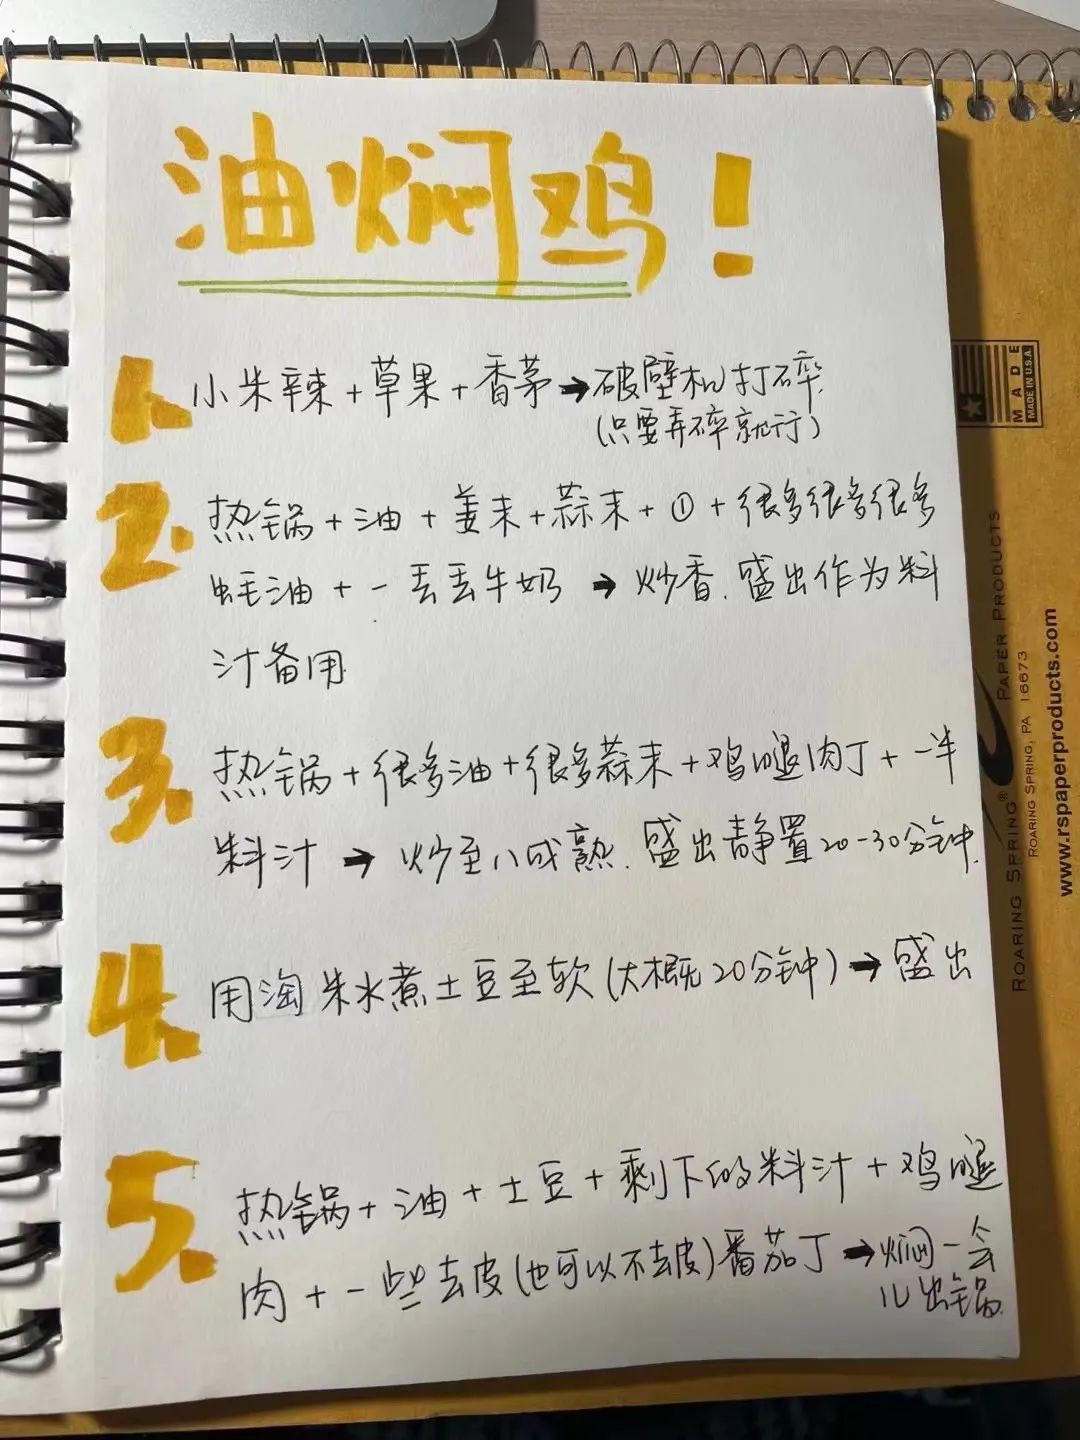 油焖鸡！
1. 小米辣+草果+香茅→破壁机打碎.
(只要弄碎就行)
2. 热锅+油+姜末+蒜末+①+很多很多很多
蚝油+一丢丢牛奶→炒香.盛出作为料
汁备用
3. 热锅+很多油+很多蒜末+鸡腿肉丁+一半
料汁→炒至八成熟.盛出静置20-30分钟.
4. 用淘米水煮土豆至软(大概20分钟)→盛出
5. 热锅+油+土豆+剩下的料汁+鸡腿
肉+一些去皮(也可以不去皮)番茄丁→焖一会
儿出锅.
MADE
MADE IN U.S.A.
ROARING SPRING® PAPER PRODUCTS
ROARING SPRING, PA 16673
www.rspaperproducts.com